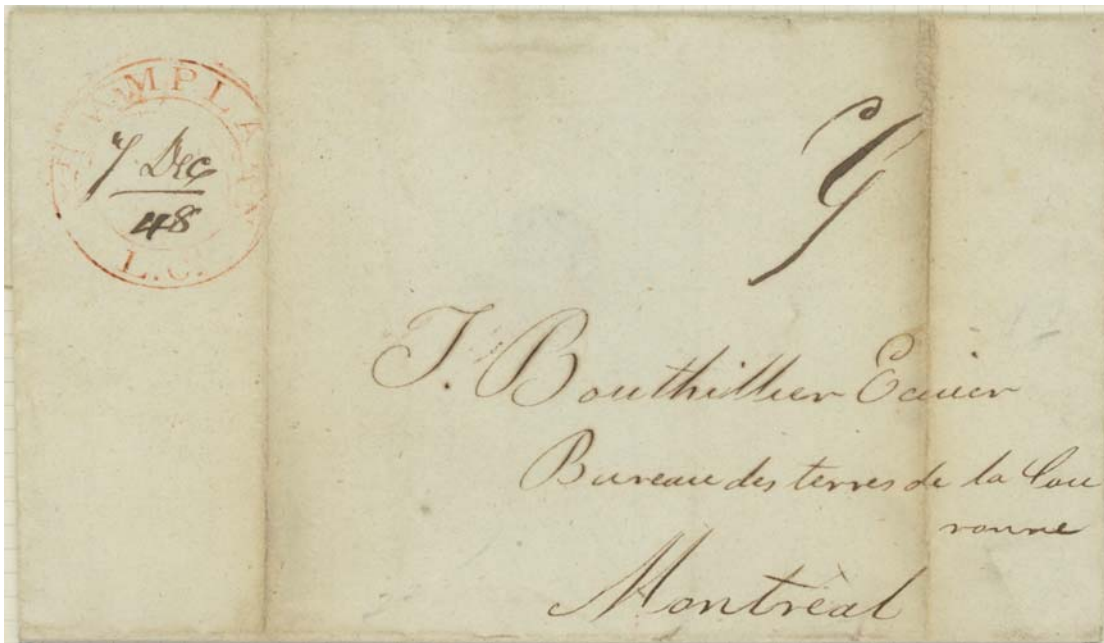 CHAMPLAIN
7 Dec
48
L.C.
9
T. Bouthillier Ecuier
Bureau des terres de la Cou
ronne
Montréal